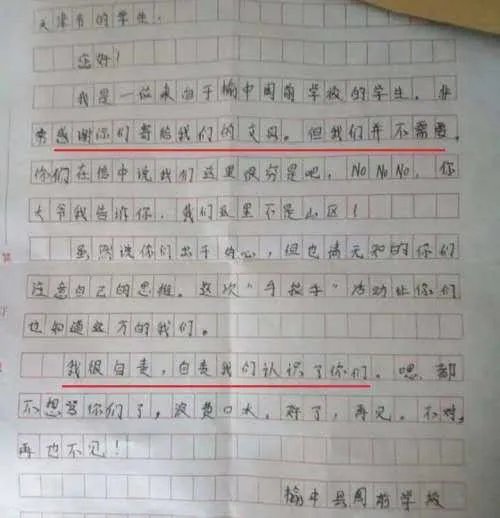 天津市的学生:
您好!
我是一位来自于榆中周前学校的学生。非
常感谢你们寄给我们的文具。但我们并不需要。
你们在信中说我们这里很穷是吧，NO NO NO，你
大爷我告诉你，我们这里不是山区!
虽然说你们出于好心，但也请无知的你们
注意自己的思维。这次"手拉手"活动让你们
也知道这方的我们。
我很自责，自责我们认识了你们。嗯，都
不想骂你们了，浪费口水。好了，再见。不对，
再也不见!
榆中县周前学校